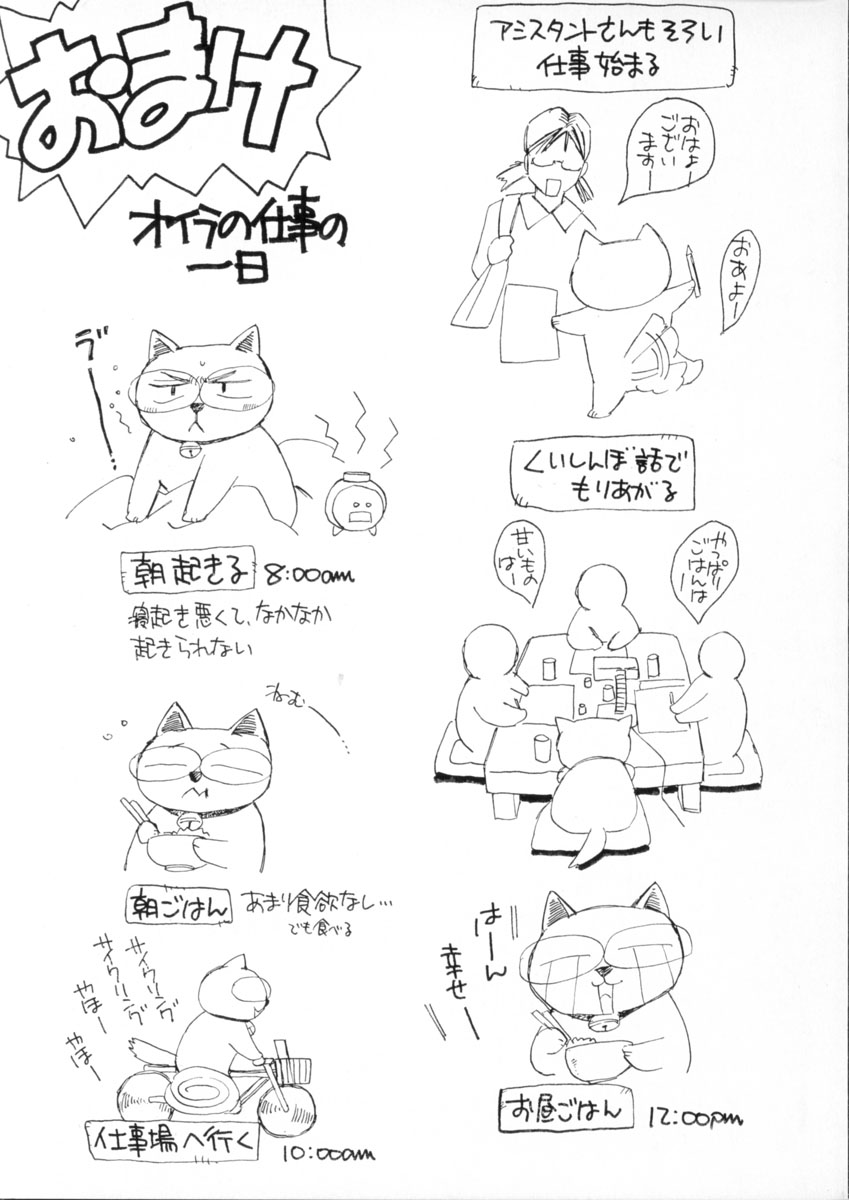 おまけ
オイラの仕事の
一日
ヴーー…
朝起きる 8:00am
寝起き悪くて、なかなか
起きられない
ねむ……
朝ごはん あまり食欲なし…
でも食べる
サイクリング
サイクリング
やほー
やほー
仕事場へ行く 10:00am
アシスタントさんもそろい
仕事始まる
おはよー
ございい
ますー
おあよー
くいしんぼ話で
もりあがる
やっぱり
ごはんは
ー
甘いもの
はー
はーん
幸せー
お昼ごはん 12:00pm